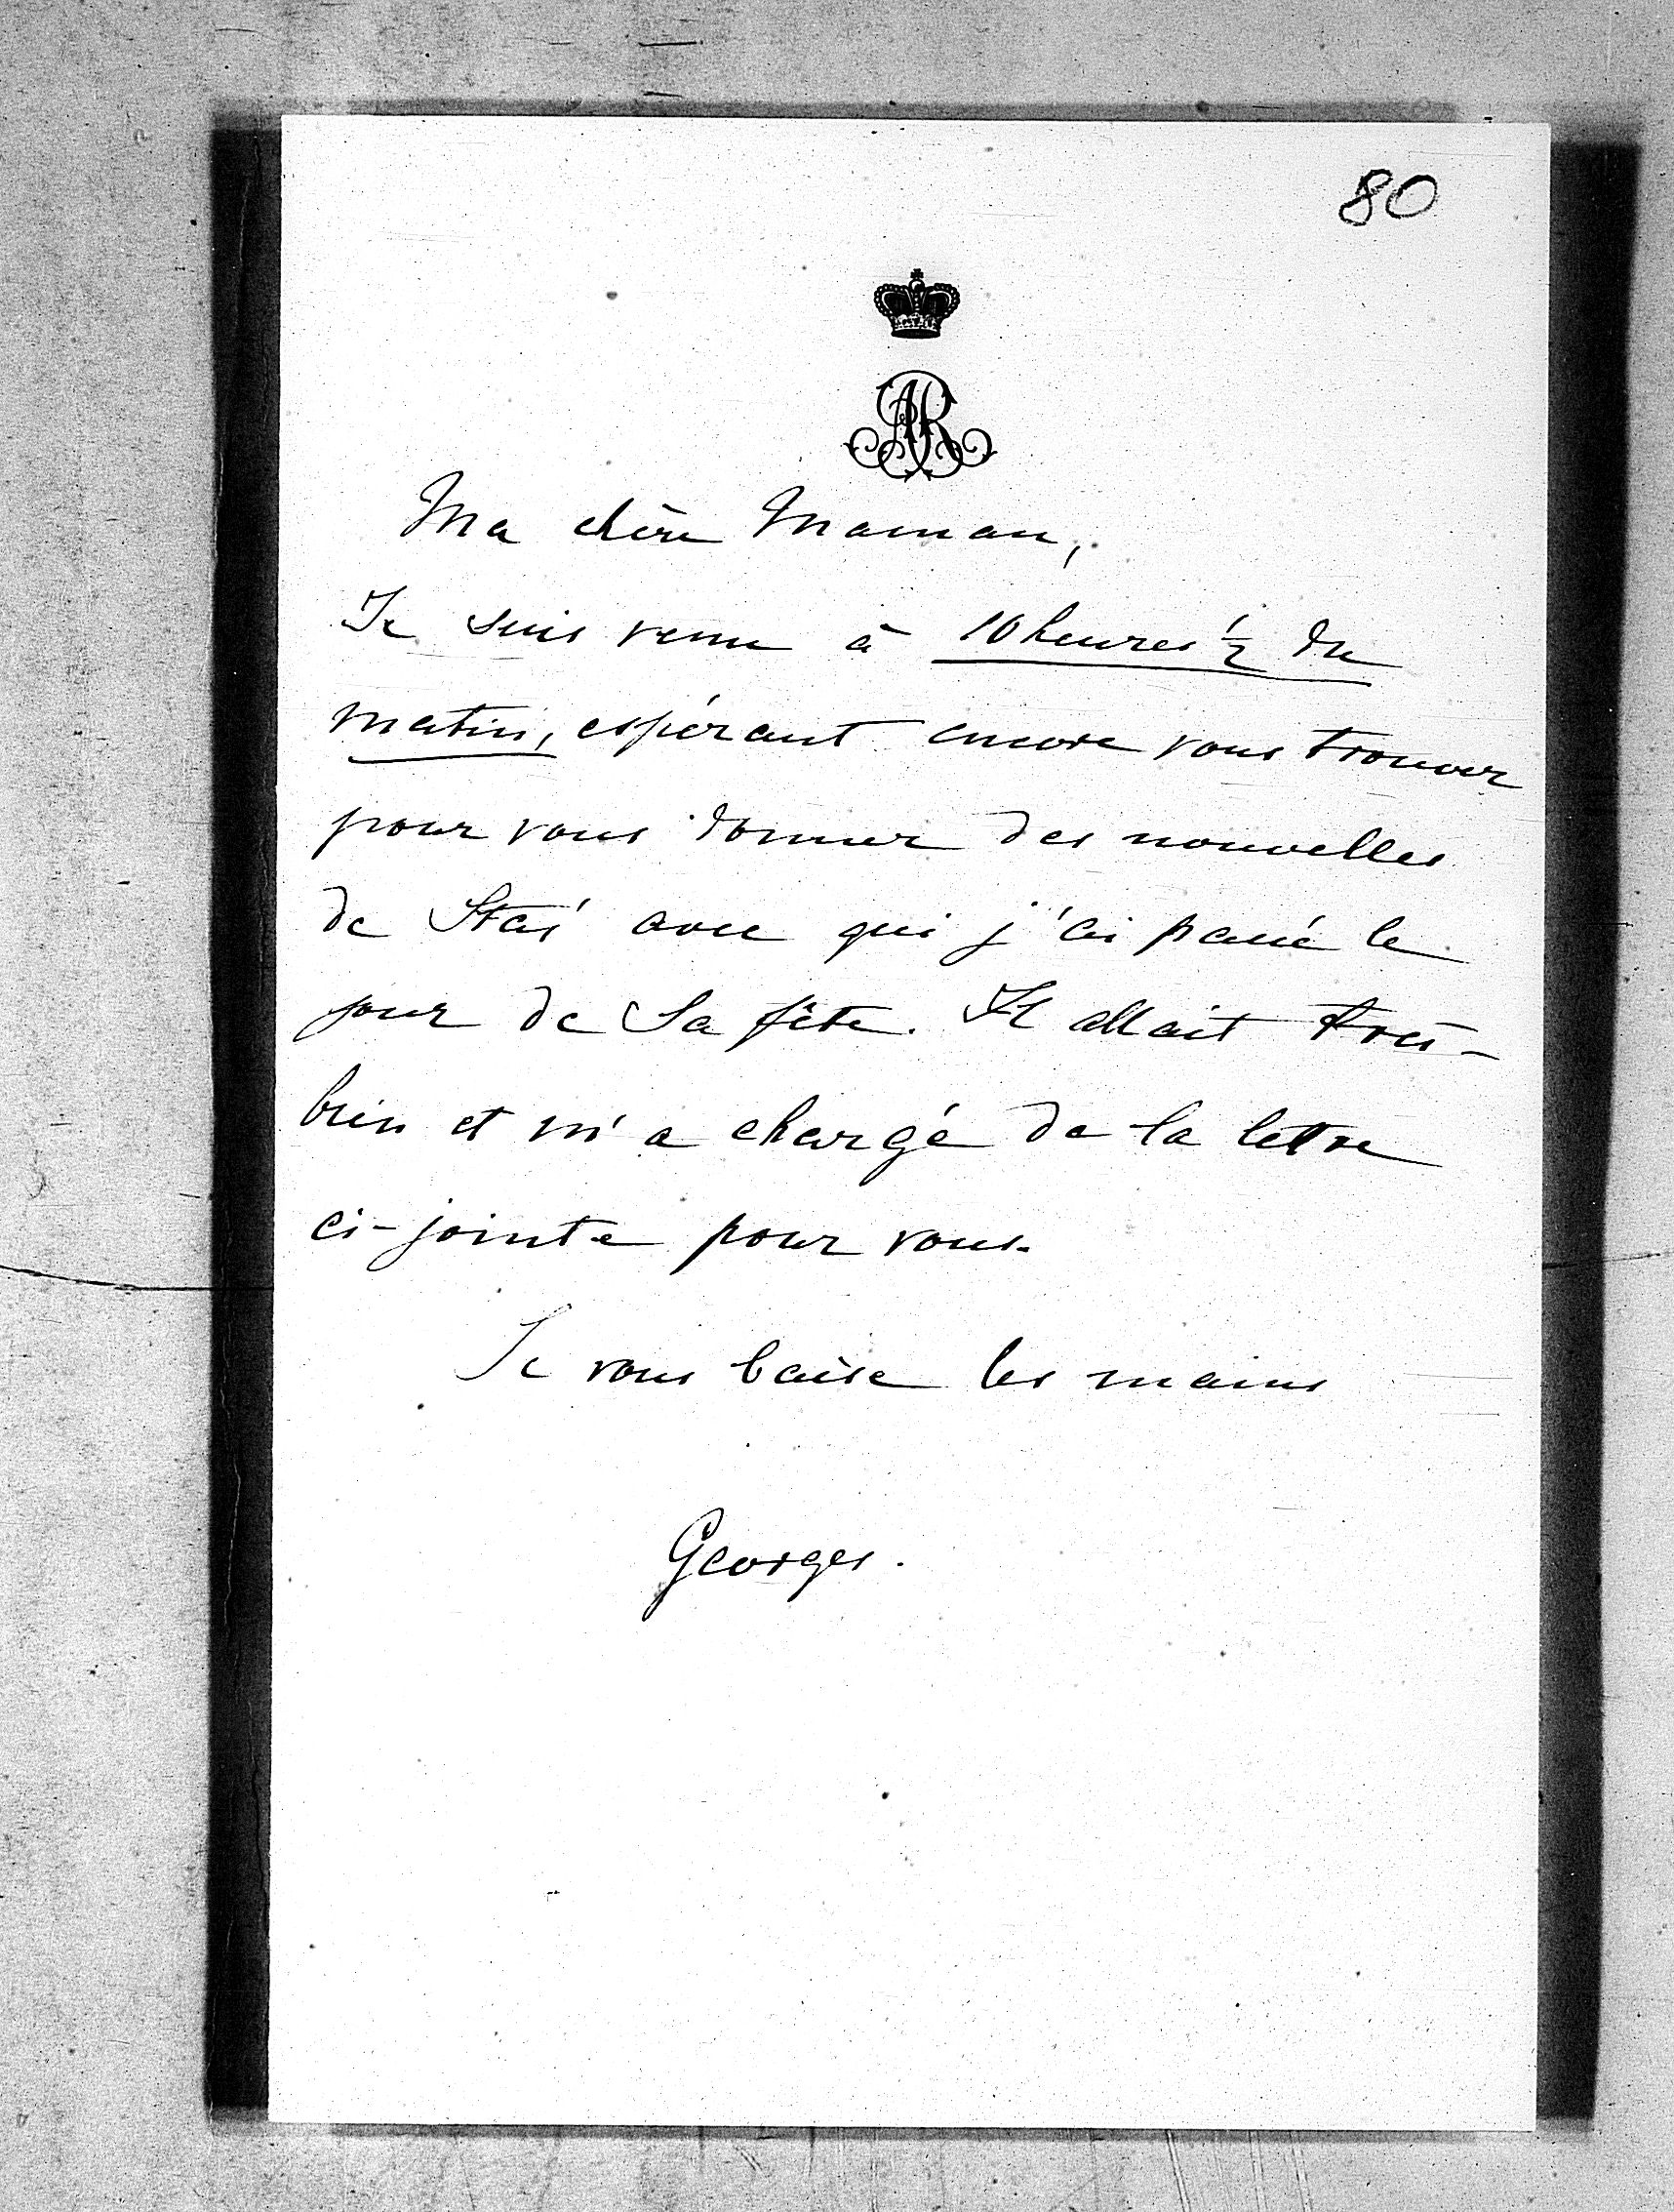 80
AR
Ma chère Maman,
Je suis venu à 10 heures ½ du
matin, espérant encore vous trouver
pour vous donner des nouvelles
de Staś avec qui j'ai passé le
jour de Sa fête. Il allait très-
bien et m'a chargé de la lettre
ci-jointe pour vous.
Je vous baise les mains
Georges.